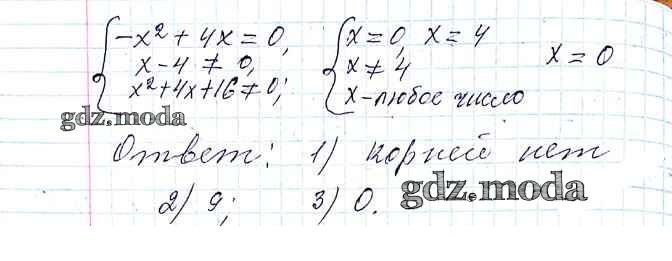 −x² + 4x = 0,
x − 4 ≠ 0,
x² + 4x + 16 ≠ 0;
x = 0, x = 4
x ≠ 4
x − любое число
x = 0
gdz.moda
Ответ: 1) корней нет
2) 9; 3) 0.
gdz.moda